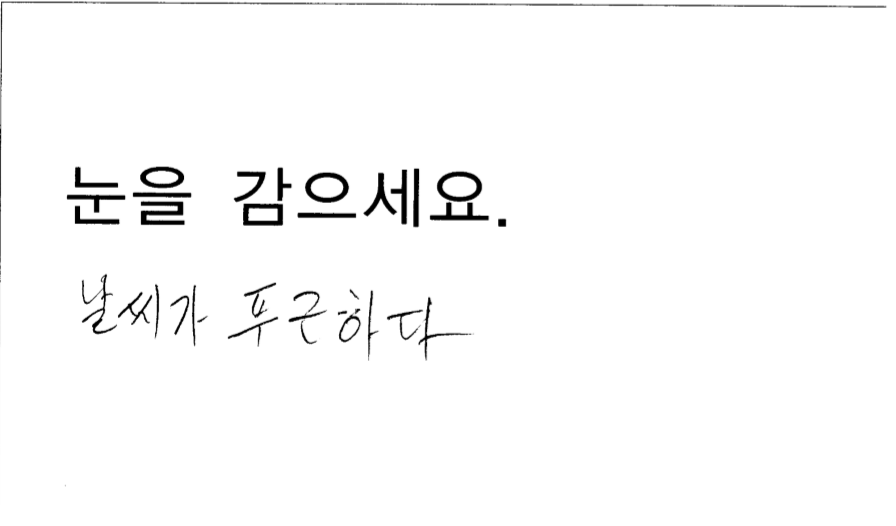 눈을 감으세요.
날씨가 푸근하다